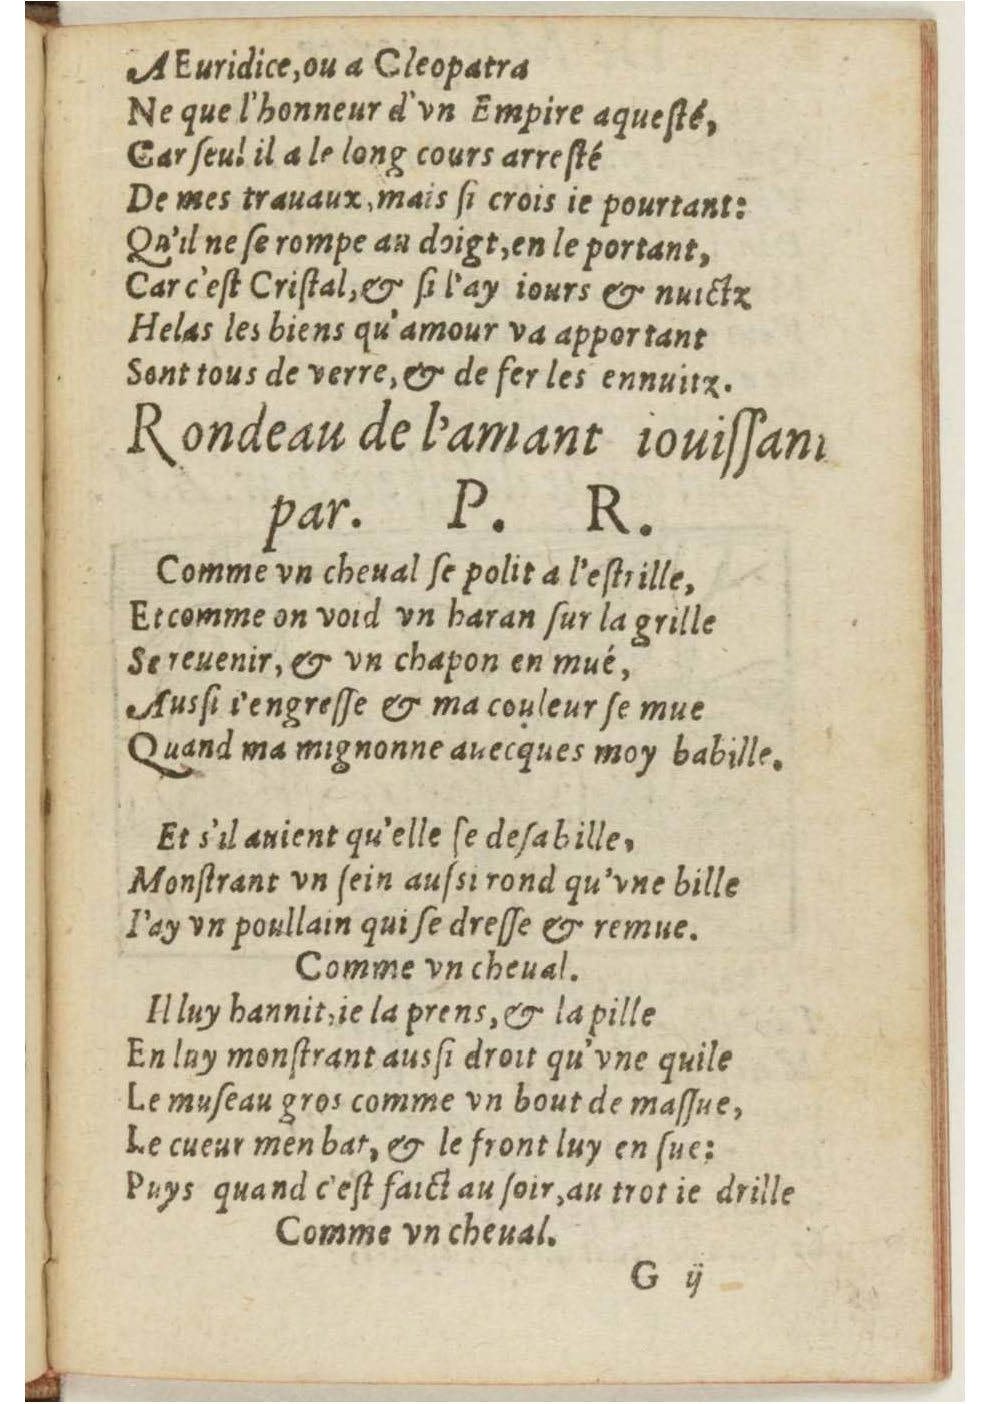 A Euridice, ou a Cleopatra
Ne que l'honneur d'vn Empire aqueſté,
Car ſeul il a le long cours arreſté
De mes trauaux, mais ſi crois ie pourtant:
Qu'il ne ſe rompe au doigt, en le portant,
Car c'eſt Criſtal, & ſi l'ay iours & nuictz
Helas les biens qu'amour va apportant
Sont tous de verre, & de fer les ennuitz.
Rondeau de l'amant iouiſſant
par. P. R.
Comme vn cheual ſe polit a l'eſtrille,
Et comme on void vn haran ſur la grille
Se reuenir, & vn chapon en mué,
Auſſi i'engreſſe & ma couleur ſe mue
Quand ma mignonne auecques moy babille.
Et s'il auient qu'elle ſe deſabille,
Monſtrant vn ſein auſsi rond qu'vne bille
I'ay vn poullain qui ſe dreſſe & remue.
Comme vn cheual.
Il luy hannit, ie la prens, & la pille
En luy monſtrant auſſi droit qu'vne quile
Le muſeau gros comme vn bout de maſſue,
Le cueur men bat, & le front luy en ſue:
Puys quand c'eſt faict au ſoir, au trot ie drille
Comme vn cheual.
G ij